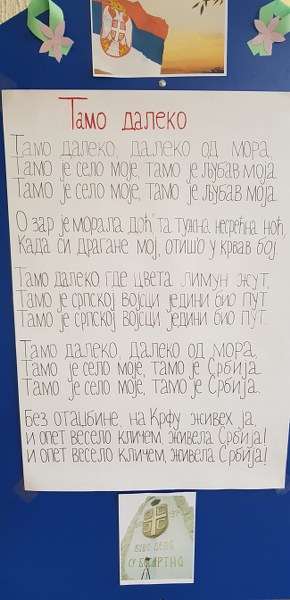 Тамо далеко
Тамо далеко, далеко од мора,
Тамо је село моје, тамо је љубав моја.
Тамо је село моје, тамо је љубав моја.
О зар је морала доћ' та тужна, несрећна ноћ,
Када си драгане мој, отишо у крвав бој.
Тамо далеко, где цвета лимун жут,
Тамо је српској војсци једини био пут.
Тамо је српској војсци једини био пут.
Тамо далеко, далеко од мора,
Тамо је село моје, тамо је Србија.
Тамо је село моје, тамо је Србија.
Без отаџбине, на Крфу живех ја,
и опет весело кличем, живела Србија!
и опет весело кличем, живела Србија!